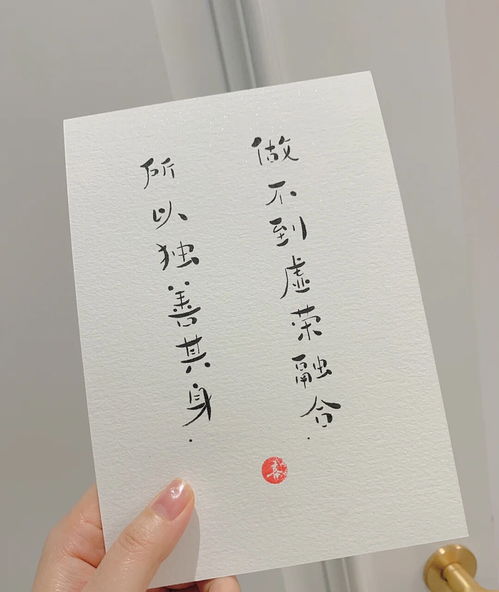 做不到虚荣融合.
所以独善其身.